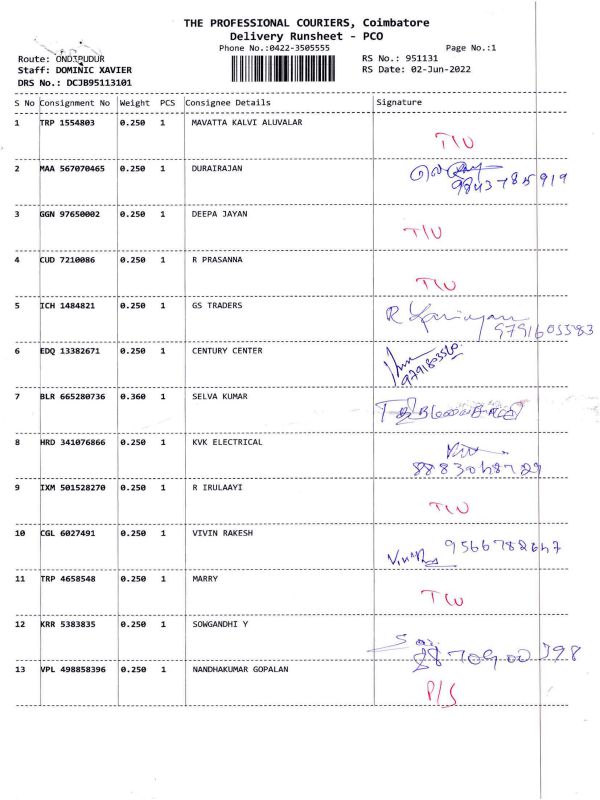 THE PROFESSIONAL COURIERS, Coimbatore
Delivery Runsheet - PCO
Phone No.:0422-3505555
Page No.:1
Route: ONDIPUDUR
RS No.: 951131
Staff: DOMINIC XAVIER
RS Date: 02-Jun-2022
DRS No.: DCJB95113101
S No Consignment No Weight PCS Consignee Details Signature
1 TRP 1554803 0.250 1 MAVATTA KALVI ALUVALAR
2 MAA 567070465 0.250 1 DURAIRAJAN
9843785919
3 GGN 97650002 0.250 1 DEEPA JAYAN
4 CUD 7210086 0.250 1 R PRASANNA
5 ICH 1484821 0.250 1 GS TRADERS
6 EDQ 13382671 0.250 1 CENTURY CENTER
7 BLR 665280736 0.360 1 SELVA KUMAR
8 HRD 341076866 0.250 1 KVK ELECTRICAL
9 IXM 501528270 0.250 1 R IRULAAYI
10 CGL 6027491 0.250 1 VIVIN RAKESH
11 TRP 4658548 0.250 1 MARRY
12 KRR 5383835 0.250 1 SOWGANDHI Y
13 VPL 498858396 0.250 1 NANDHAKUMAR GOPALAN
P/S